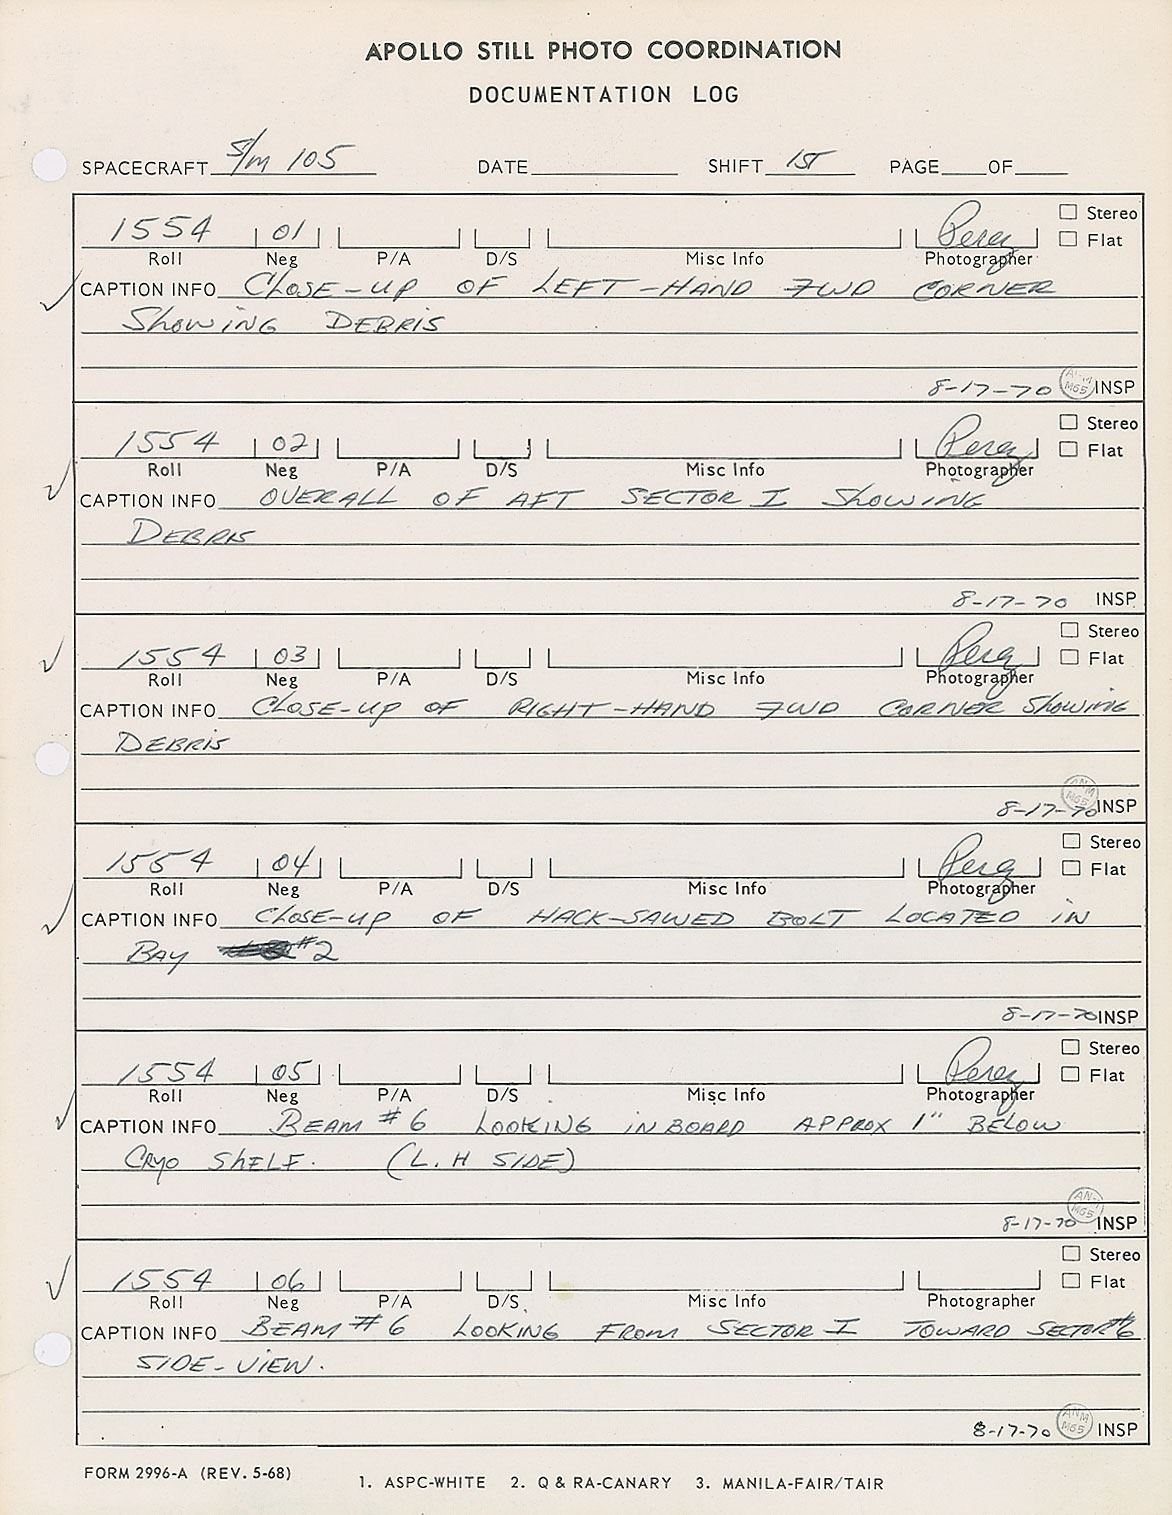 APOLLO STILL PHOTO COORDINATION
DOCUMENTATION LOG
SPACECRAFT S/M 105 DATE SHIFT 1ST PAGE OF
1554 01 Perez Stereo
Flat
Roll Neg P/A D/S Misc Info Photographer
CAPTION INFO CLOSE-UP OF LEFT-HAND FWD CORNER
SHOWING DEBRIS
8-17-70 M65 INSP
1554 02 Perez Stereo
Flat
Roll Neg P/A D/S Misc Info Photographer
CAPTION INFO OVERALL OF AFT SECTOR I SHOWING
DEBRIS
8-17-70 INSP
1554 03 Perez Stereo
Flat
Roll Neg P/A D/S Misc Info Photographer
CAPTION INFO CLOSE-UP OF RIGHT-HAND FWD CORNER SHOWING
DEBRIS
8-17-70 ANM M65 INSP
1554 04 Perez Stereo
Flat
Roll Neg P/A D/S Misc Info Photographer
CAPTION INFO CLOSE-UP OF HACK-SAWED BOLT LOCATED IN
BAY #2
8-17-70 INSP
1554 05 Perez Stereo
Flat
Roll Neg P/A D/S Misc Info Photographer
CAPTION INFO BEAM #6 LOOKING INBOARD APPROX 1" BELOW
CRYO SHELF. (L.H SIDE)
8-17-70 M65 INSP
1554 06 Stereo
Flat
Roll Neg P/A D/S Misc Info Photographer
CAPTION INFO BEAM #6 LOOKING FROM SECTOR I TOWARD SECTOR #6
SIDE-VIEW.
8-17-70 ANM M65 INSP
FORM 2996-A (REV. 5-68) 1. ASPC-WHITE 2. Q & RA-CANARY 3. MANILA-FAIR/TAIR